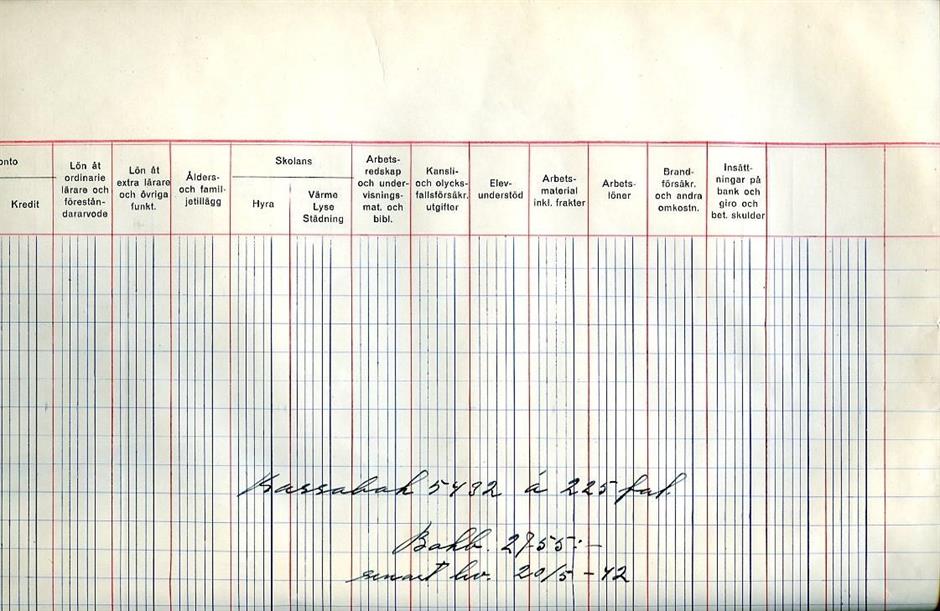 onto
Kredit
Lön åt
ordinarie
lärare och
förestån-
dararvode
Lön åt
extra lärare
och övriga
funkt.
Ålders-
och famil-
jetillägg
Skolans
Hyra
Värme
Lyse
Städning
Arbets-
redskap
och under-
visnings-
mat. och
bibl.
Kansli-
och olycks-
fallsförsäkr.
utgifter
Elev-
understöd
Arbets-
material
inkl. frakter
Arbets-
löner
Brand-
försäkr.
och andra
omkostn.
Insätt-
ningar på
bank och
giro och
bet. skulder
Kassabok 5432 á 225 fol.
Bokb. 2755:-
senast lev. 20/5-42